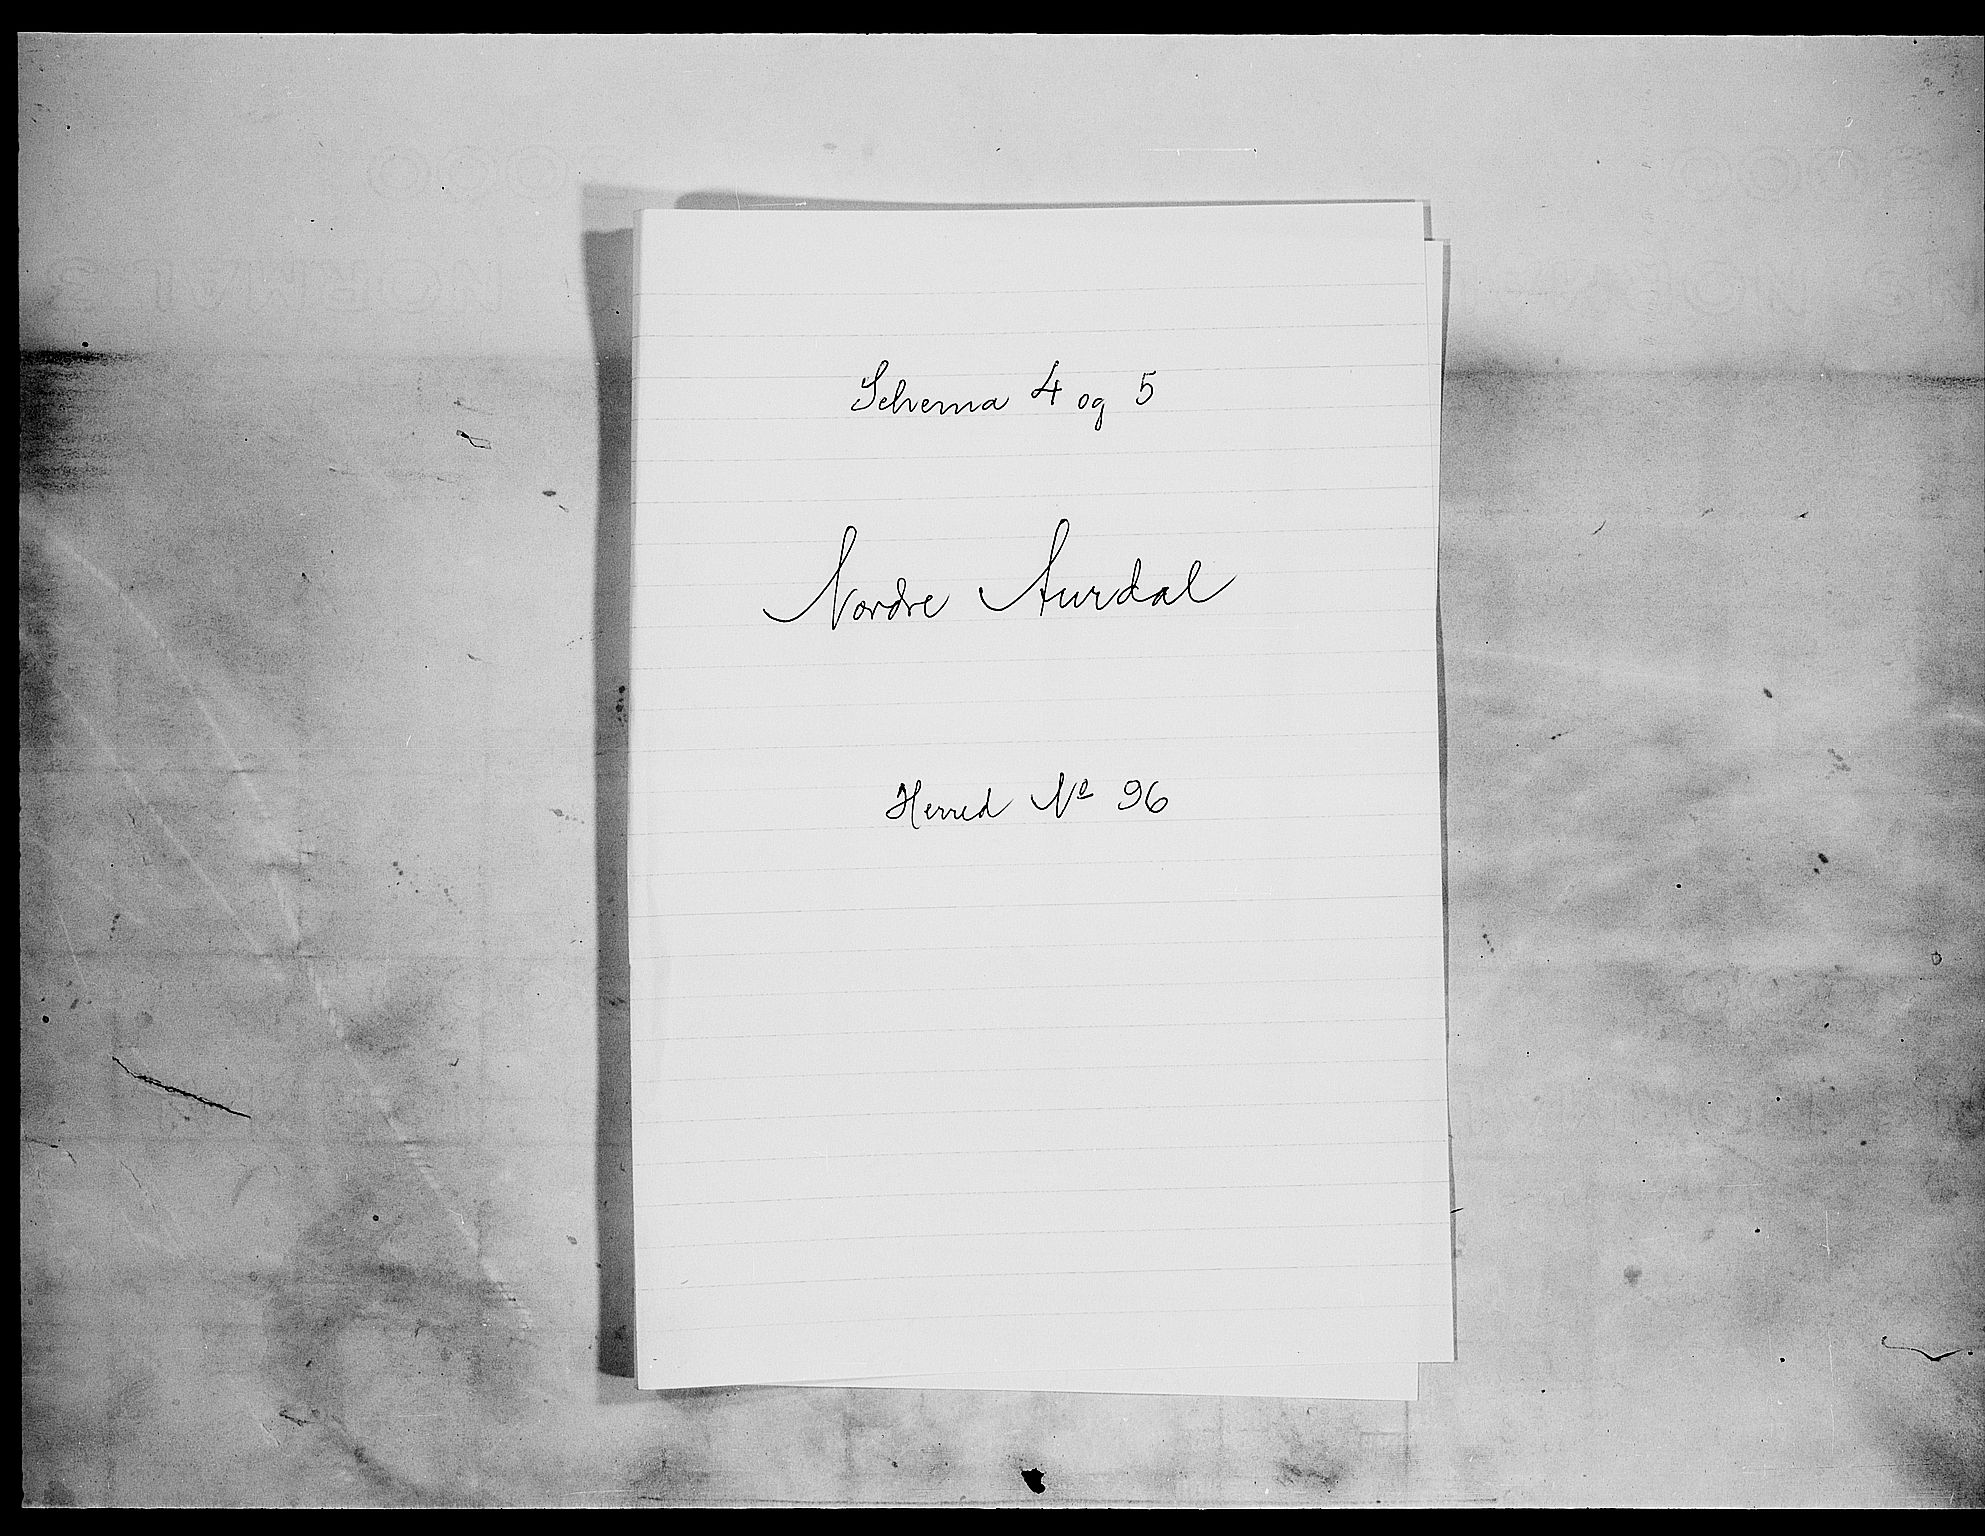 Schema 4 og 5
Nordre Aurdal
Herred No 96